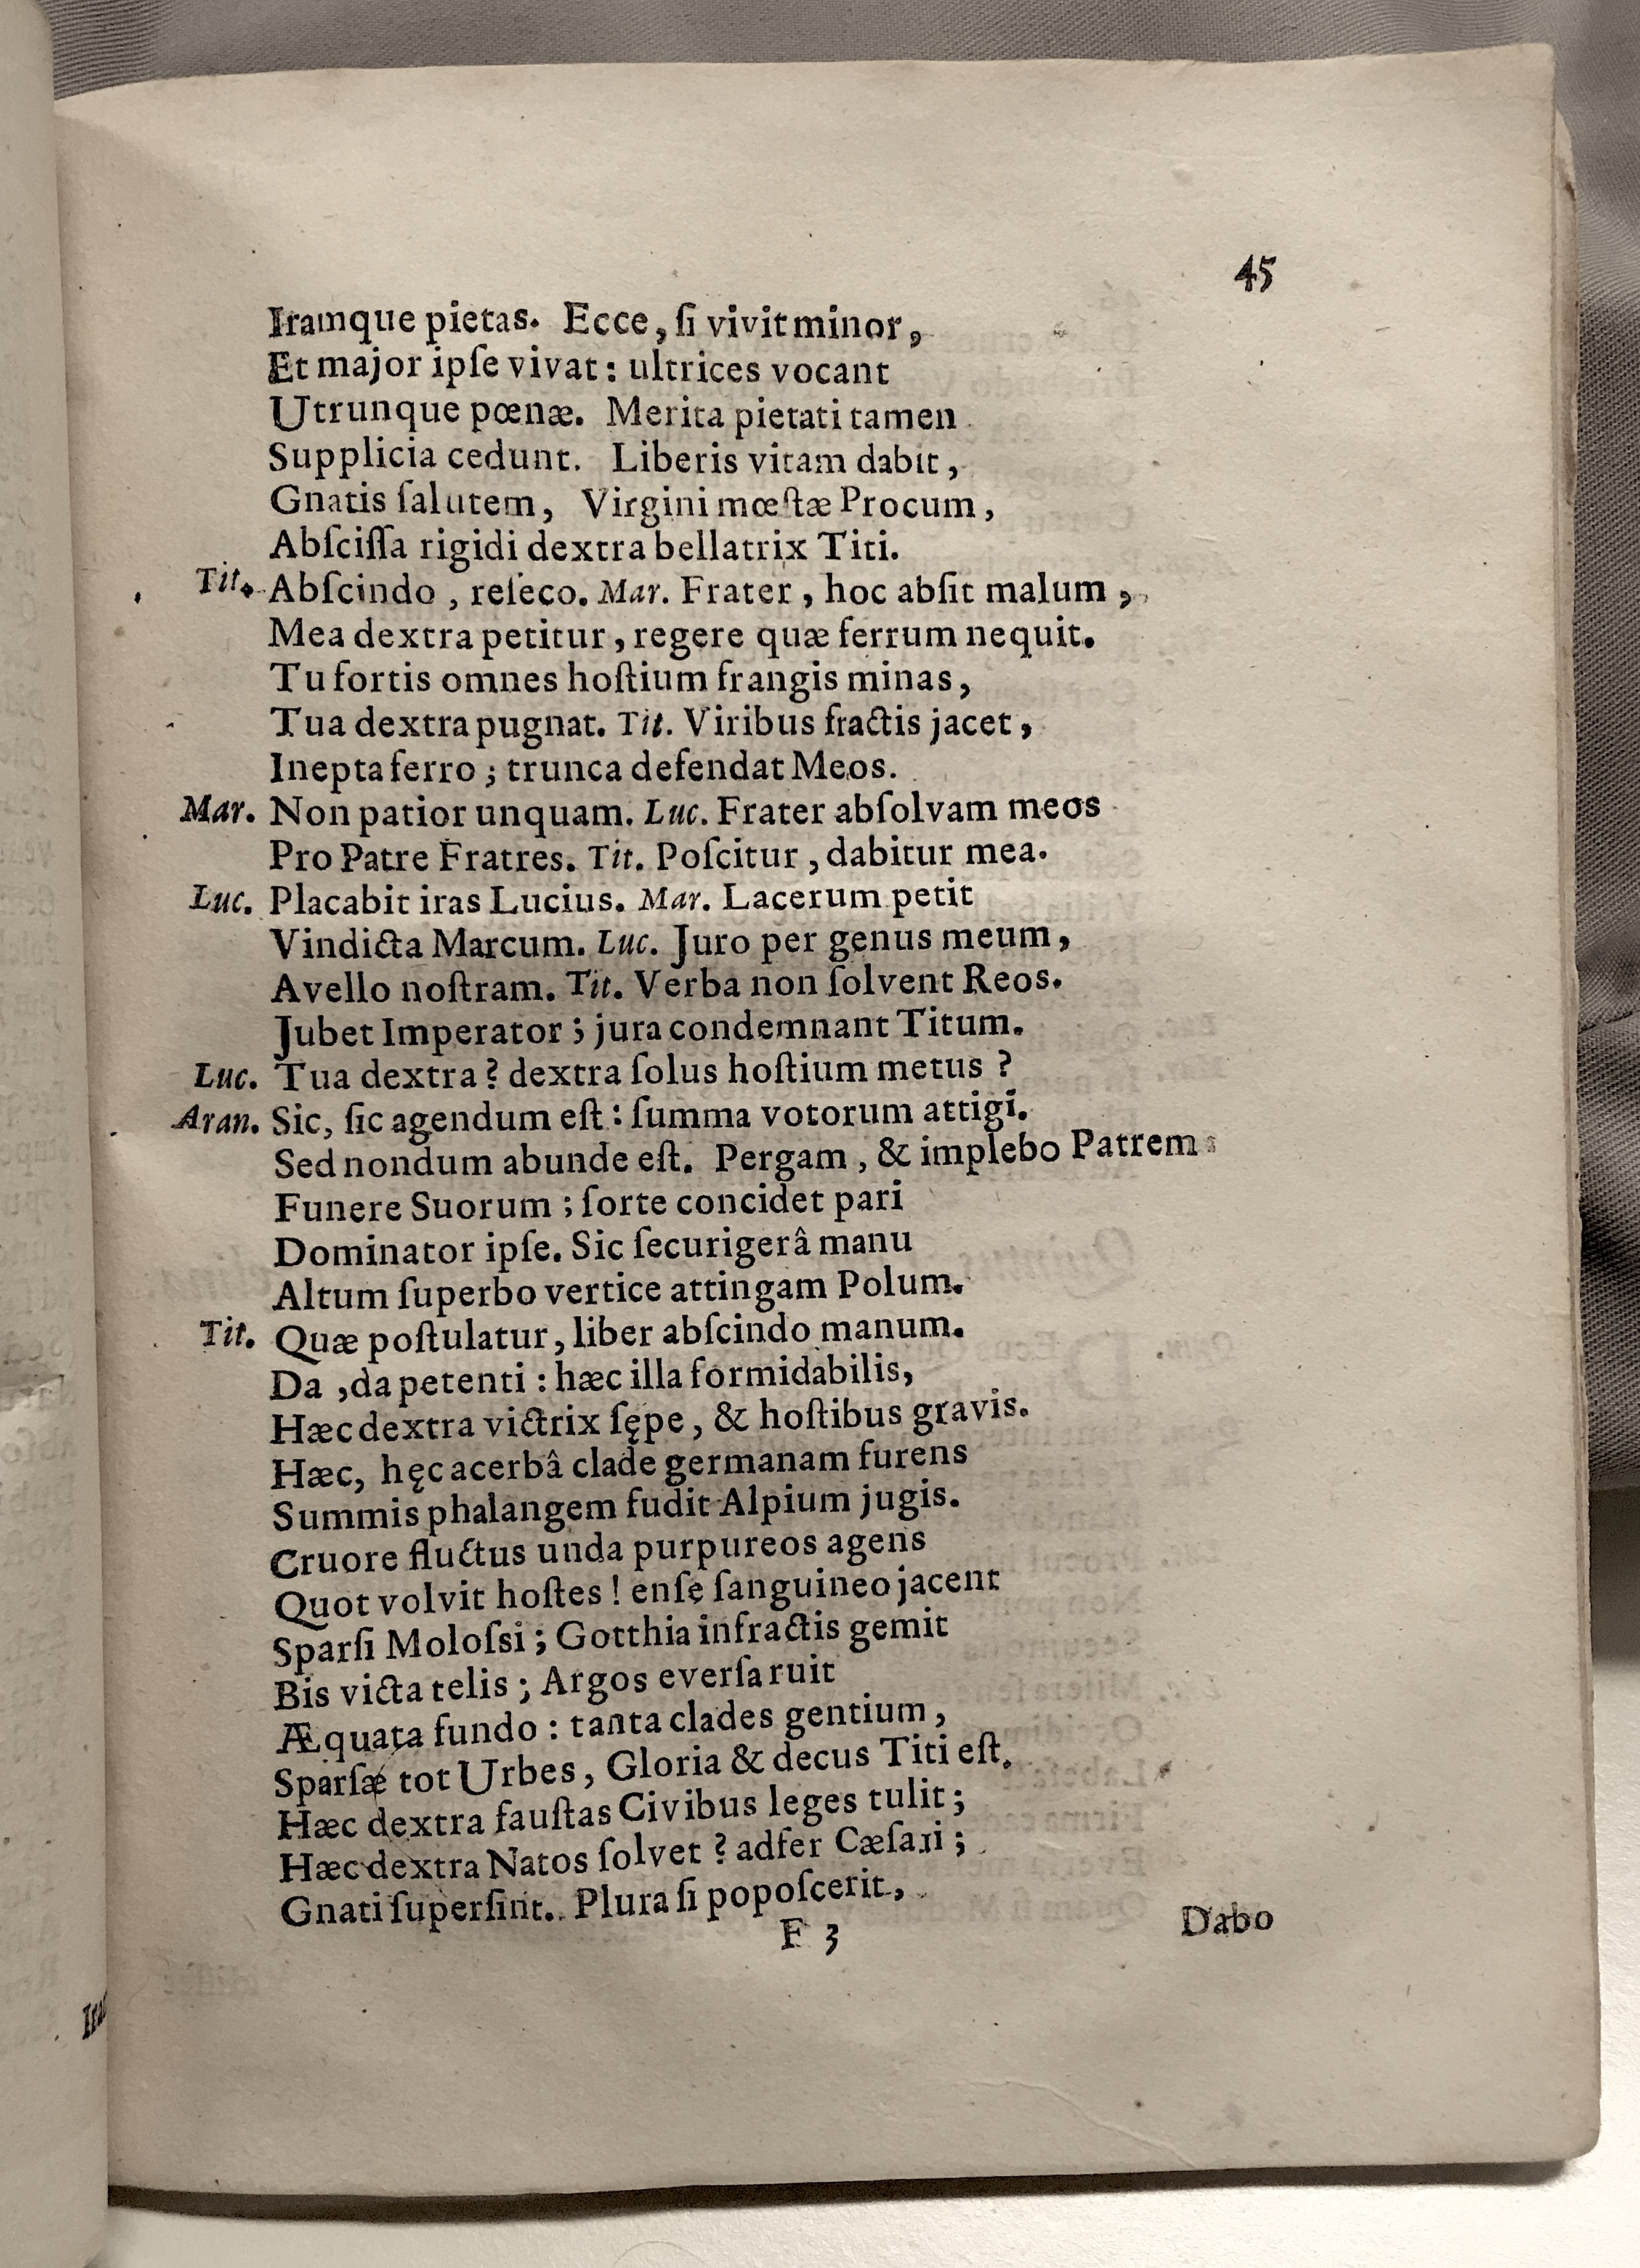 45
Iramque pietas. Ecce, ſi vivit minor,
Et major ipſe vivat: ultrices vocant
Utrunque pœnæ. Merita pietati tamen
Supplicia cedunt. Liberis vitam dabit,
Gnatis ſalutem, Virgini mœſtæ Procum,
Abſciſſa rigidi dextra bellatrix Titi.
Tit. Abſcindo, reſeco. Mar. Frater, hoc abſit malum,
Mea dextra petitur, regere quæ ferrum nequit.
Tu fortis omnes hoſtium frangis minas,
Tua dextra pugnat. Tit. Viribus fractis jacet,
Inepta ferro; trunca defendat Meos.
Mar. Non patior unquam. Luc. Frater abſolvam meos
Pro Patre Fratres. Tit. Poſcitur, dabitur mea.
Luc. Placabit iras Lucius. Mar. Lacerum petit
Vindicta Marcum. Luc. Juro per genus meum,
Avello noſtram. Tit. Verba non ſolvent Reos.
Jubet Imperator; jura condemnant Titum.
Luc. Tua dextra? dextra ſolus hoſtium metus?
Aran. Sic, ſic agendum eſt: ſumma votorum attigi.
Sed nondum abunde eſt. Pergam, & implebo Patrem
Funere Suorum; ſorte concidet pari
Dominator ipſe. Sic ſecurigerâ manu
Altum ſuperbo vertice attingam Polum.
Tit. Quæ poſtulatur, liber abſcindo manum.
Da, da petenti: hæc illa formidabilis,
Hæc dextra victrix ſępe, & hoſtibus gravis.
Hæc, hęc acerbâ clade germanam furens
Summis phalangem fudit Alpium jugis.
Cruore fluctus unda purpureos agens
Quot volvit hoſtes! enſe ſanguineo jacent
Sparſi Moloſsi; Gotthia infractis gemit
Bis victa telis; Argos everſa ruit
Æquata fundo: tanta clades gentium,
Sparſæ tot Urbes, Gloria & decus Titi eſt.
Hæc dextra fauſtas Civibus leges tulit;
Hæc dextra Natos ſolvet? adfer Cæſari;
Gnati ſuperſint. Plura ſi popoſcerit,
F 3 Dabo